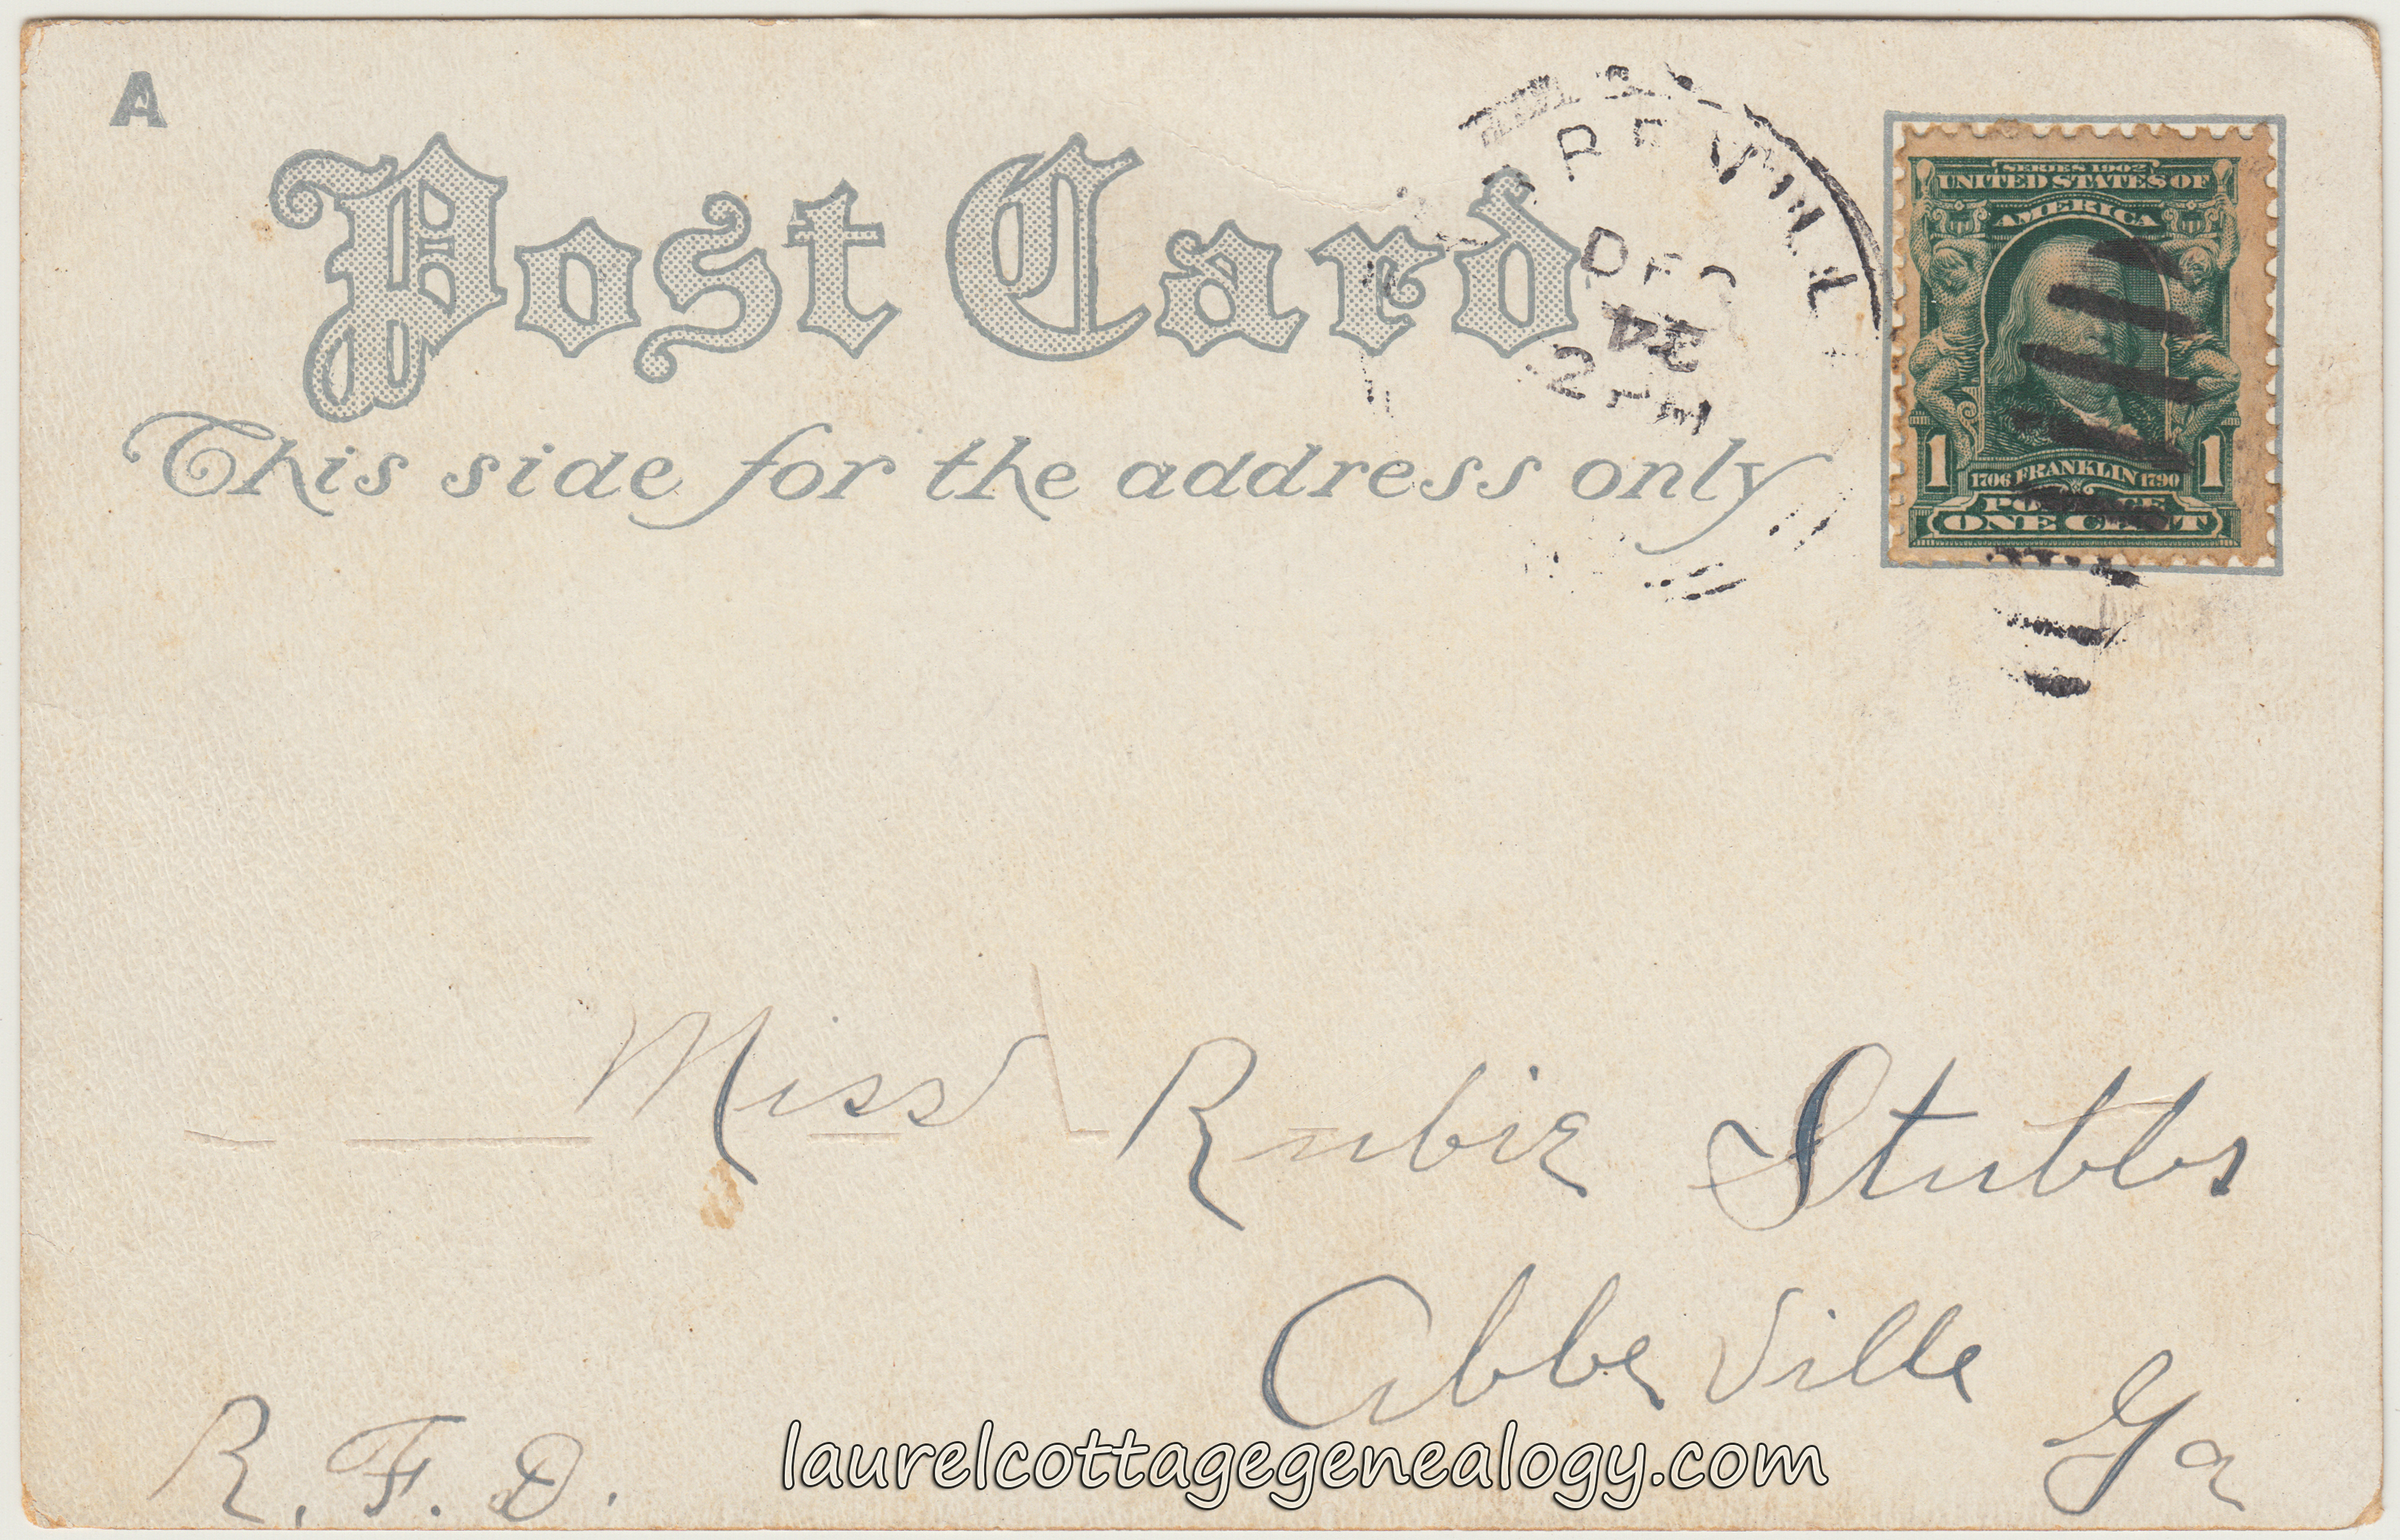 A
Post Card
This side for the address only
DEC
24
2 PM
SERIES 1902
UNITED STATES OF
AMERICA
1 1
1706 FRANKLIN 1790
POSTAGE
ONE CENT
Miss Rubie Stubbs
Abbeville
Ga
R. F. D.
laurelcottagegenealogy.com